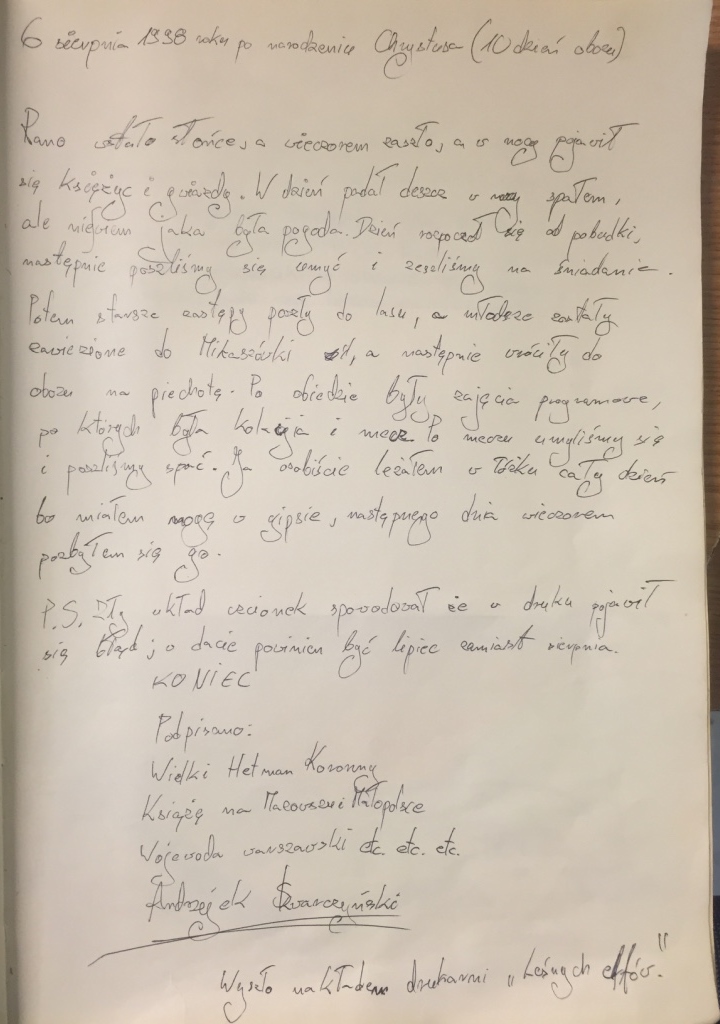 6 sierpnia 1998 roku po narodzeniu Chrystusa (10 dzień obozu)
Rano wstało słońce, a wieczorem zaszło, a w nocy pojawił
się księżyc i gwiazdy. W dzień padał deszcz w nocy spałem,
ale niewiem jaka była pogoda. Dzień rozpoczął się od pobudki,
następnie poszliśmy się umyć i zeszliśmy na śniadanie.
Potem starsze zastępy poszły do lasu, a młodsze zostały
zawiezione do Mikaszówki, a następnie wróciły do
obozu na piechotę. Po obiedzie były zajęcia programowe,
po których była kolacja i mecz. Po meczu umyliśmy się
i poszliśmy spać. Ja osobiście leżałem w łóżku cały dzień
bo miałem nogę w gipsie, następnego dnia wieczorem
pozbyłem się go.
P.S. Zły układ czcionek spowodował że w druku pojawił
się błąd; w dacie powinien być lipiec zamiast sierpnia.
KONIEC
Podpisano:
Wielki Hetman Koronny
Książę na Mazowszu i Małopolsce
Wojewoda warszawski etc. etc. etc.
Andrzejek Swarczyński
Wyszło nakładem drukarni „Leśnych elfów."